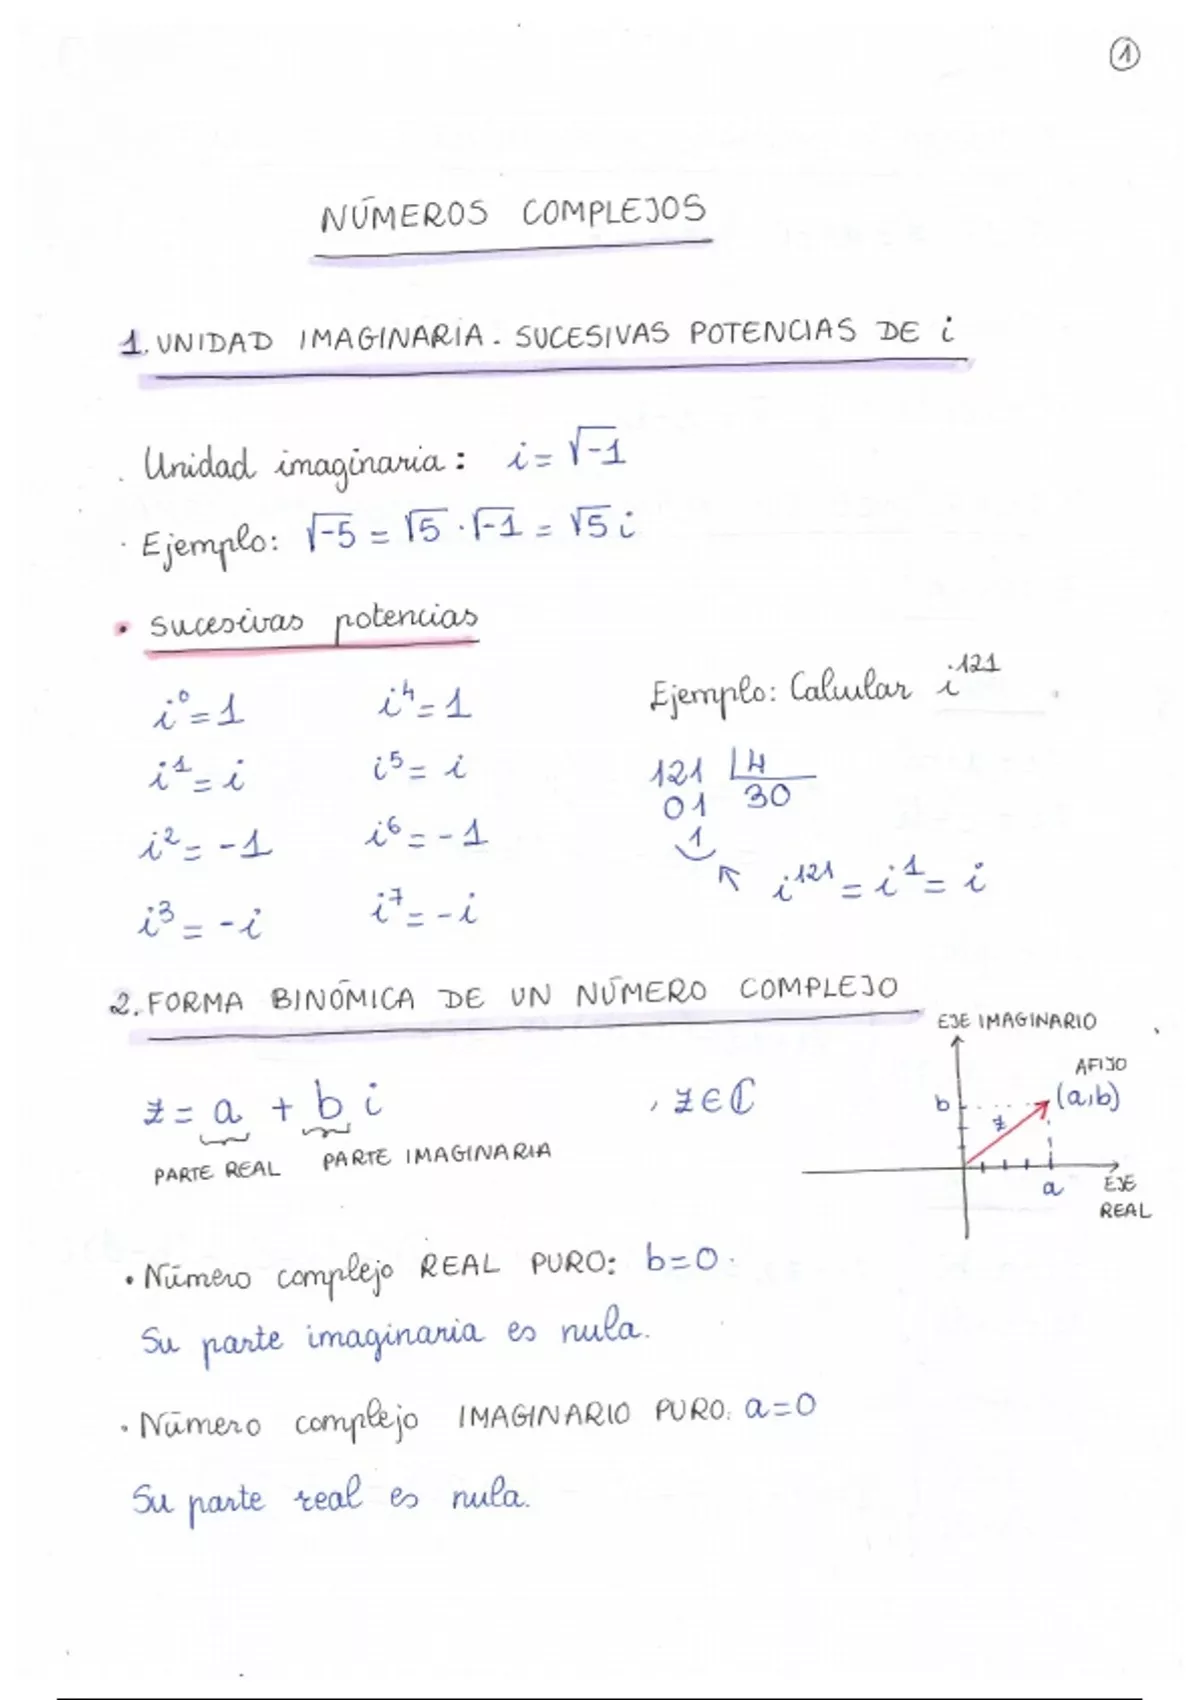 1
NÚMEROS COMPLEJOS
1. UNIDAD IMAGINARIA. SUCESIVAS POTENCIAS DE i
. Unidad imaginaria: i = √-1
· Ejemplo: √-5 = √5 · √-1 = √5 i
• Sucesivas potencias
i⁰ = 1 i⁴ = 1
i¹ = i i⁵ = i
i² = -1 i⁶ = -1
i³ = -i i⁷ = -i
Ejemplo: Calcular i¹²¹
121 | 4
01 30
1
i¹²¹ = i¹ = i
2. FORMA BINÓMICA DE UN NÚMERO COMPLEJO
z = a + b i , z ∈ ℂ
PARTE REAL PARTE IMAGINARIA
EJE IMAGINARIO
AFIJO
b z (a,b)
a EJE
REAL
• Número complejo REAL PURO: b=0.
Su parte imaginaria es nula.
• Número complejo IMAGINARIO PURO: a=0
Su parte real es nula.